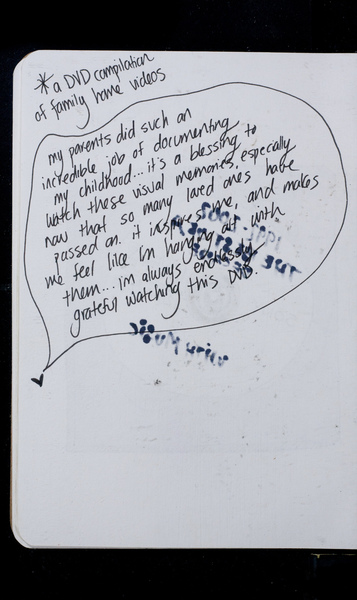 *a DVD compilation
of family home videos
my parents did such an
incredible job of documenting
my childhood...it's a blessing to
watch these visual memories, especially
now that so many loved ones have
passed on. it inspires me, and makes
me feel like I'm hanging out with
them...i'm always endlessly
grateful watching this DVD.